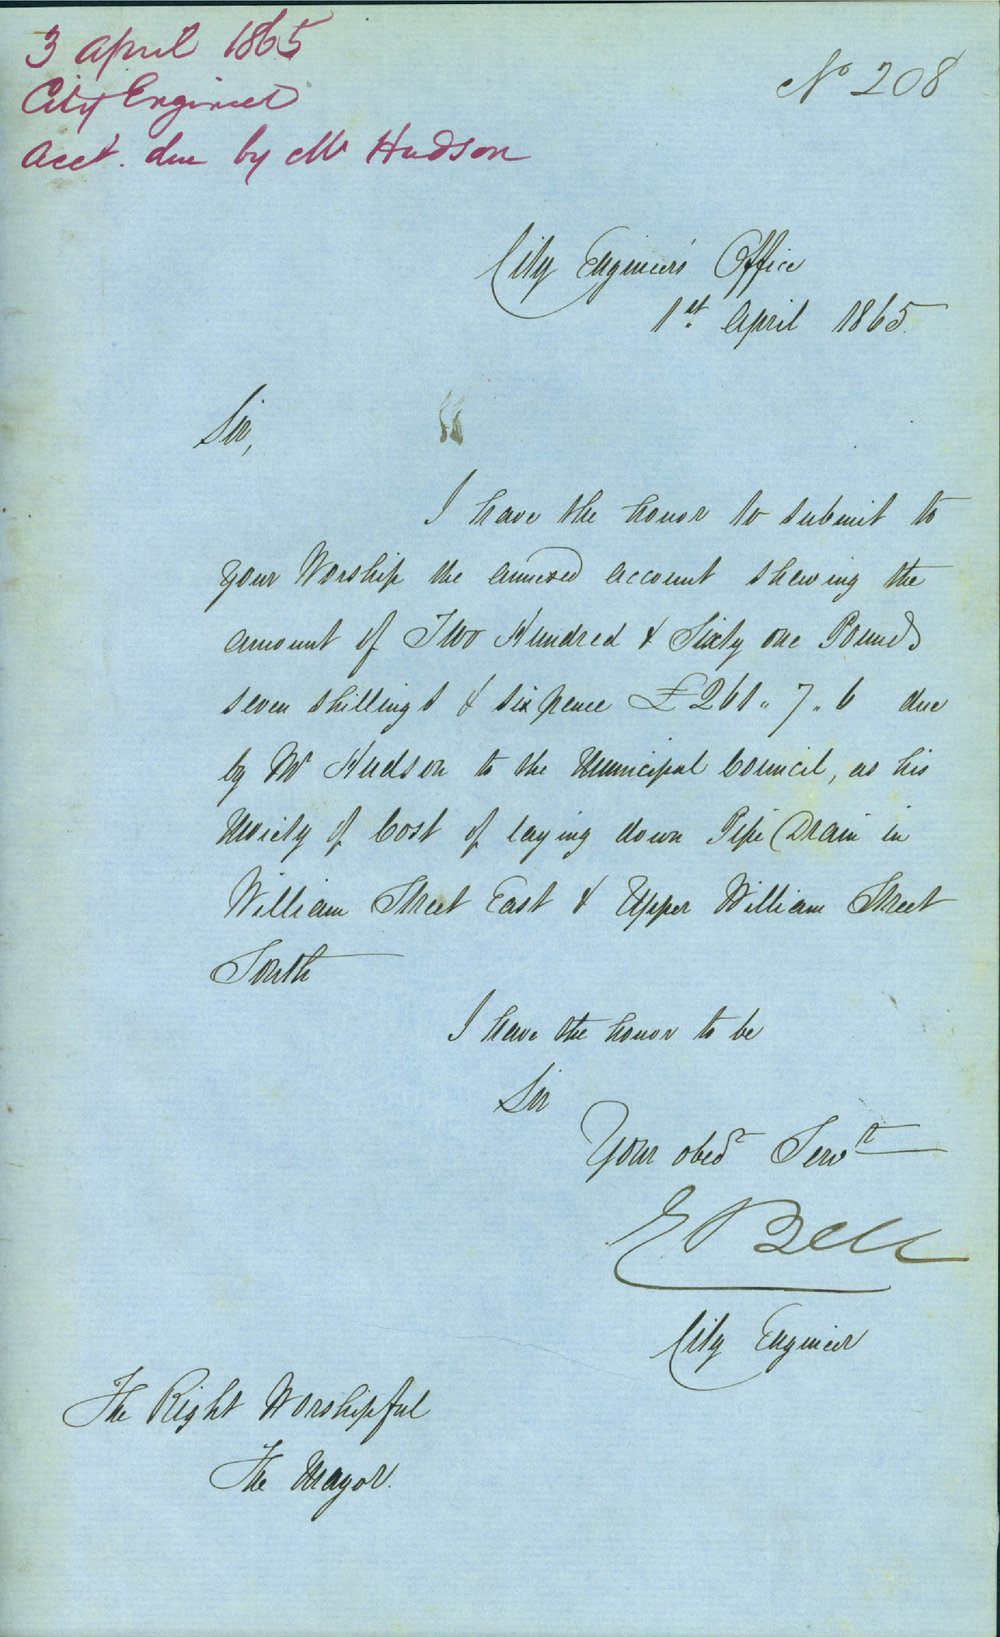 3 April 1865
City Engineer
Acct. due by Mr Hudson
No 208
City Engineer's Office
1st. April 1865
Sir,
I have the honor to submit to
your Worship the annexed account shewing the
amount of Two Hundred & Sixty one Pounds
seven shillings & six pence £261.. 7.. 6 due
by Mr Hudson to the Municipal Council, as his
Moiety of Cost of laying down Pipe Drain in
William Street East & Upper William Street
South
I have the honor to be
Sir
Your obedt Servt
E Bell
City Engineer
The Right Worshipful
The Mayor.